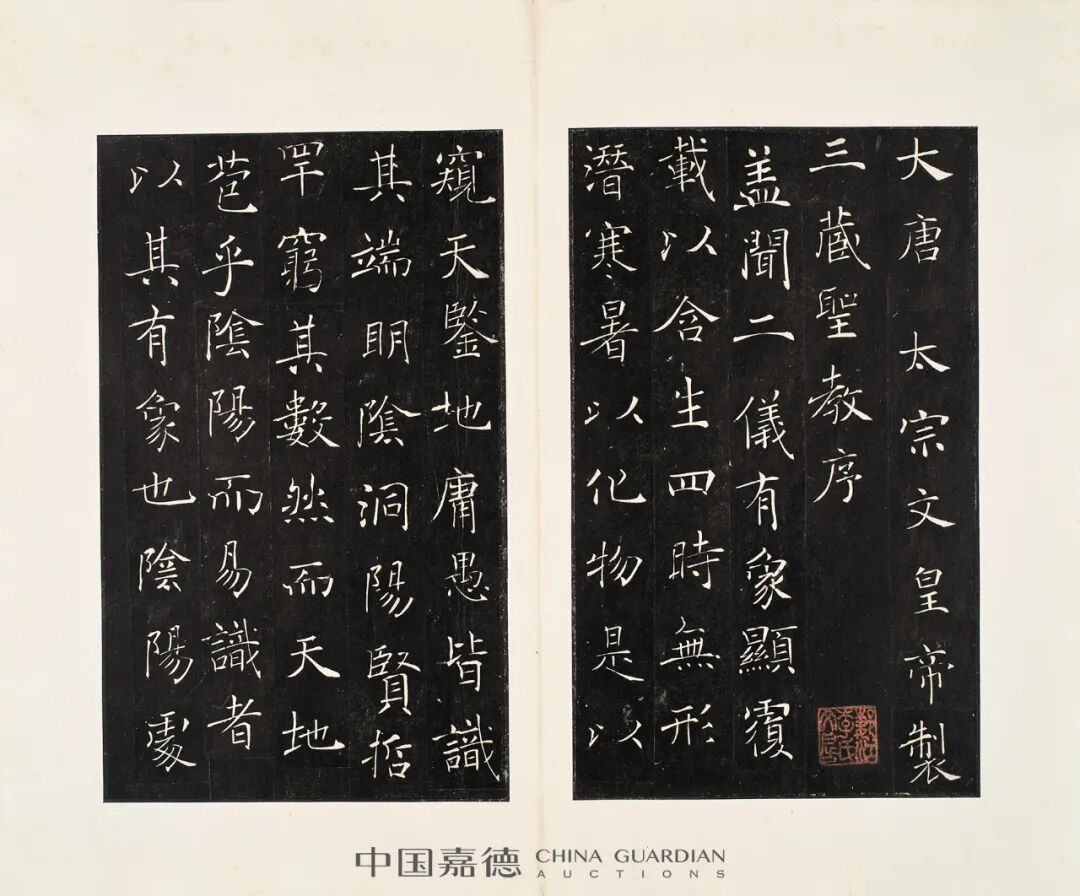 大唐太宗文皇帝製
三蔵聖教序
盖聞二儀有象顯覆
載以含生四時無形
潛寒暑以化物是以
窺天鑒地庸愚皆識
其端明陰洞陽賢哲
罕窮其數然而天地
苞乎陰陽而易識者
以其有象也陰陽處
中国嘉德 CHINA GUARDIAN
AUCTIONS